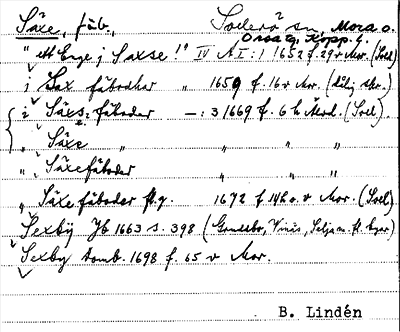 Säxe, fäb., Sollerö sn, Mora o.
Orsa tg, Kopp. l.
" ett Enge j Saxse !" IV AI:1 1652 f. 29 v Mor. (Soel)
j Sax fäbodhar " 1659 f. 16 v Mor.
i Säxs. fäboder —:3 1669 f. 6 (Soel).
" Säxe " " "
" Säxefäboder " " "
" Säxe fäboder fl. g. 1672 f. v Mor. (Soel)
Sexby Jb 1663 s. 398 ( Vinäs, Selja m. fl. byar)
Sexby Domb. 1698 f. 65 v Mor.
B. Lindén